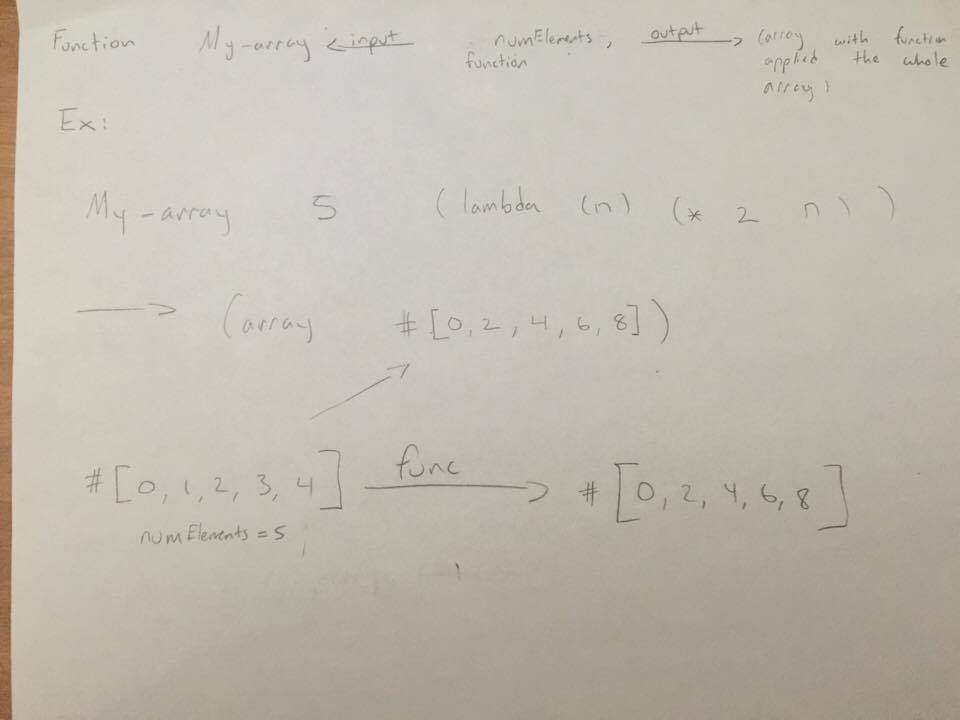 Function My-array <- input numElements, output -> (array with function
function applied the whole
array)
Ex:
My-array 5 (lambda (n) (* 2 n))
-> (array #[0, 2, 4, 6, 8])
#[0, 1, 2, 3, 4] func -> #[0, 2, 4, 6, 8]
numElements = 5